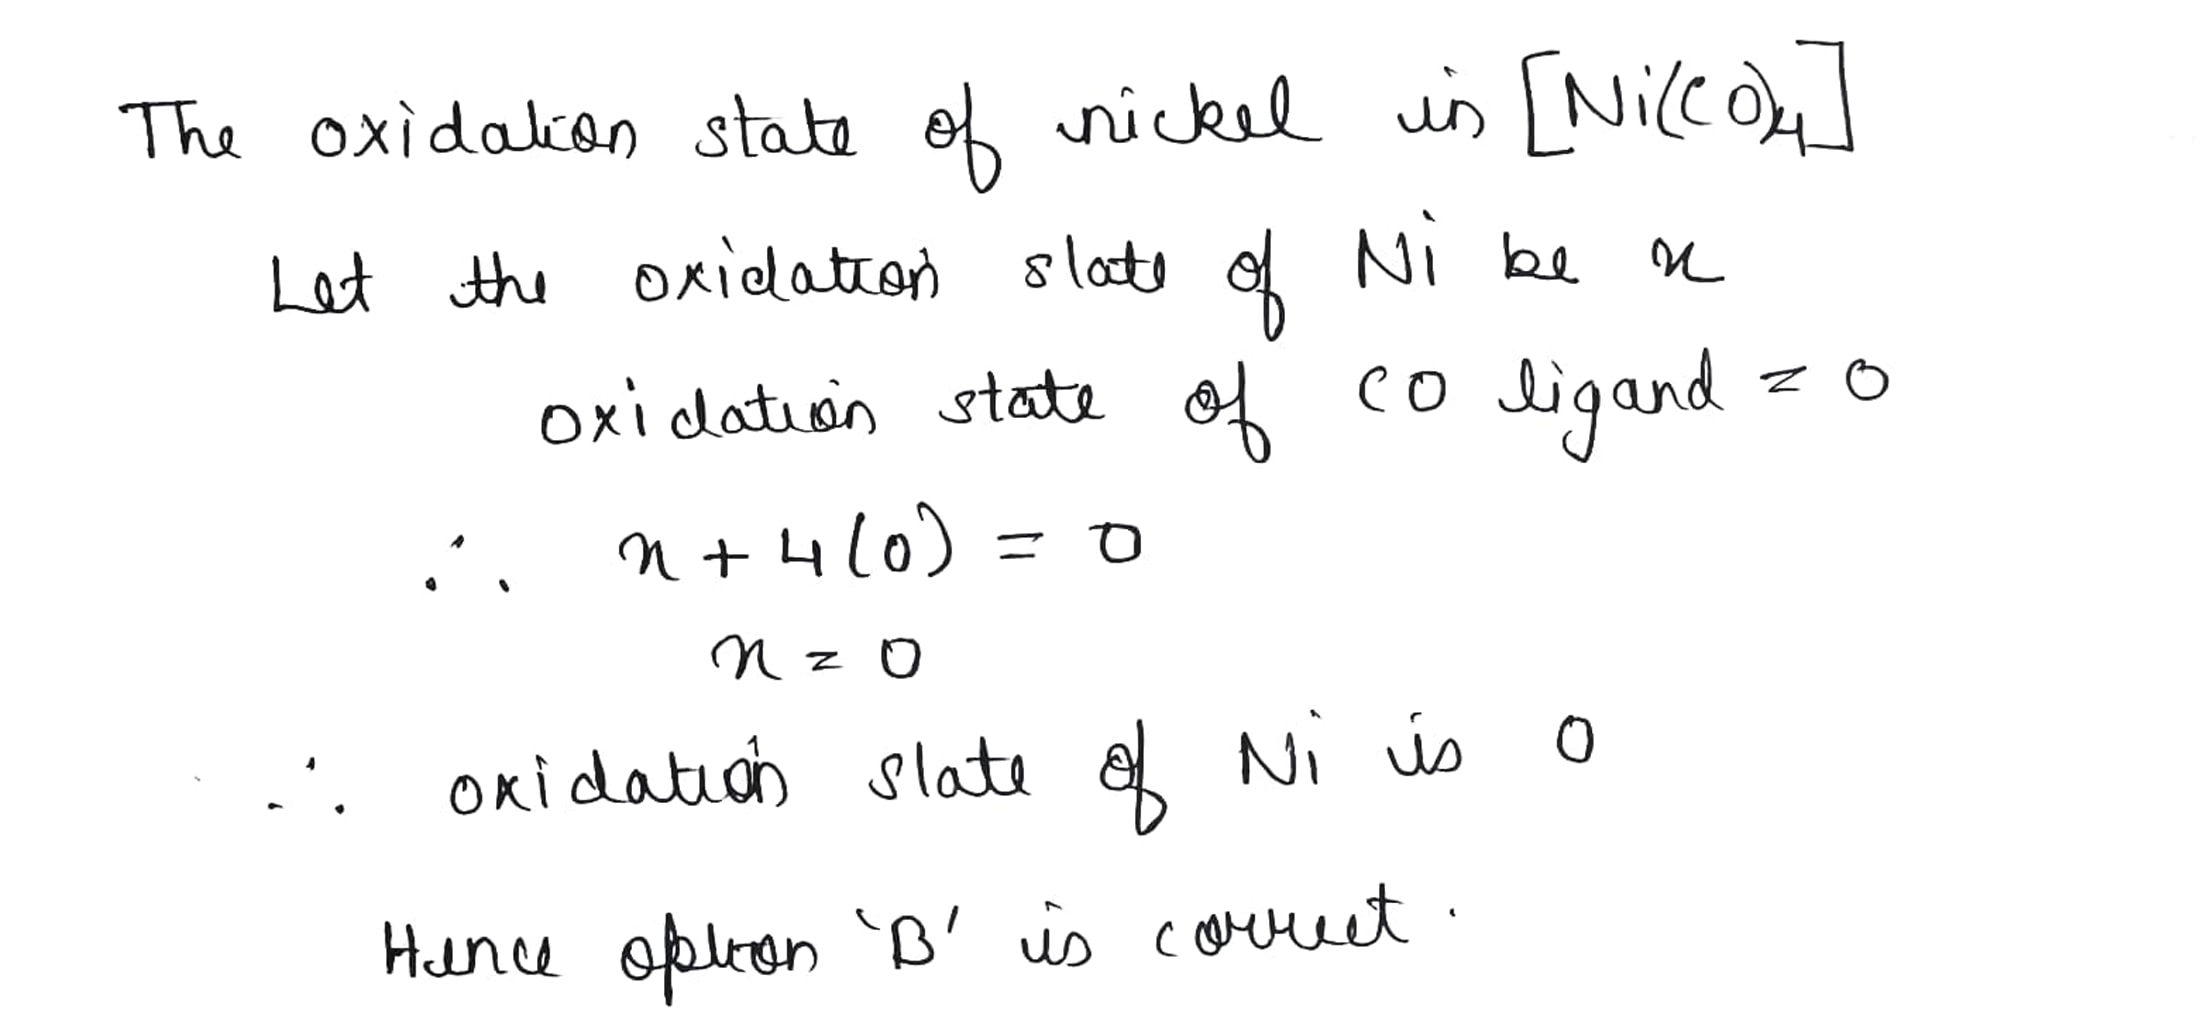 The oxidation state of nickel in [Ni(CO)4]
Let the oxidation state of Ni be x
oxidation state of CO ligand = 0
∴ x + 4(0) = 0
x = 0
∴ oxidation state of Ni is 0
Hence option 'B' is correct.